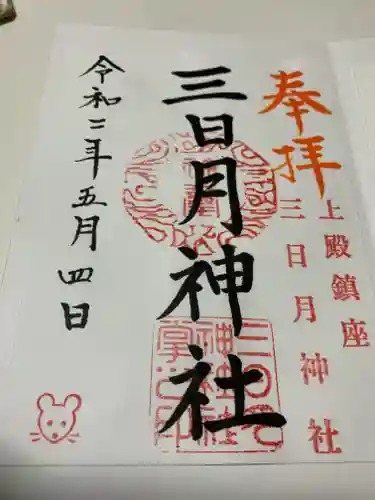 奉拝
上殿鎮座
三日月神社
三日月神社
令和二年五月四日